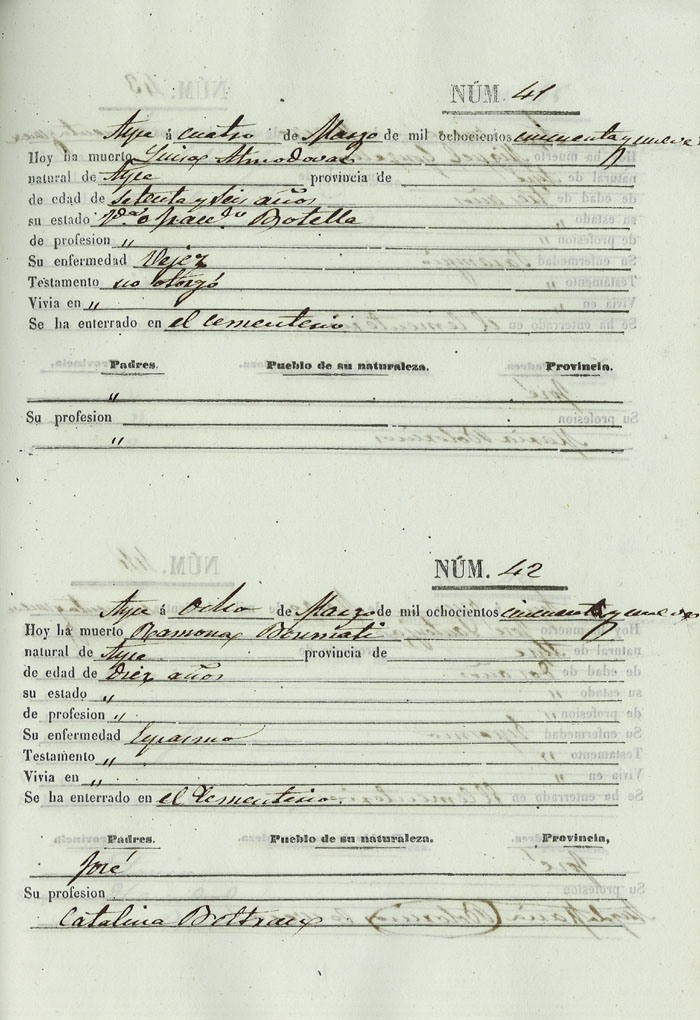 NÚM. 41
Aspe á cuatro de Marzo de mil ochocientos cincuenta y nueve
Hoy ha muerto Luisa Almodovar
natural de Aspe provincia de
de edad de setenta y seis años
su estado Botella
de profesion „
Su enfermedad Vejez
Testamento no otorgó
Vivia en „
Se ha enterrado en el cementerio
Padres. Pueblo de su naturaleza. Provincia.
„
Su profesion
„
NÚM. 42
Aspe á ocho de Marzo de mil ochocientos cincuenta y nueve
Hoy ha muerto Ramona
natural de Aspe provincia de
de edad de diez años
su estado „
de profesion „
Su enfermedad
Testamento „
Vivia en „
Se ha enterrado en el Cementerio.
Padres. Pueblo de su naturaleza. Provincia,
José
Su profesion
Catalina Beltran